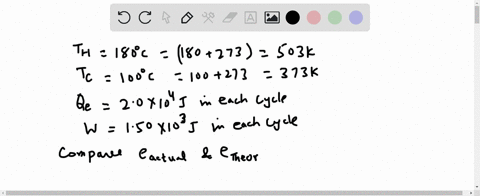 TH = 180°C = (180+273) = 503K
TC = 100°C = 100+273 = 373K
Qe = 2.0×10⁴J in each cycle
W = 1.50×10³J in each cycle
Compare eactual & eTheor